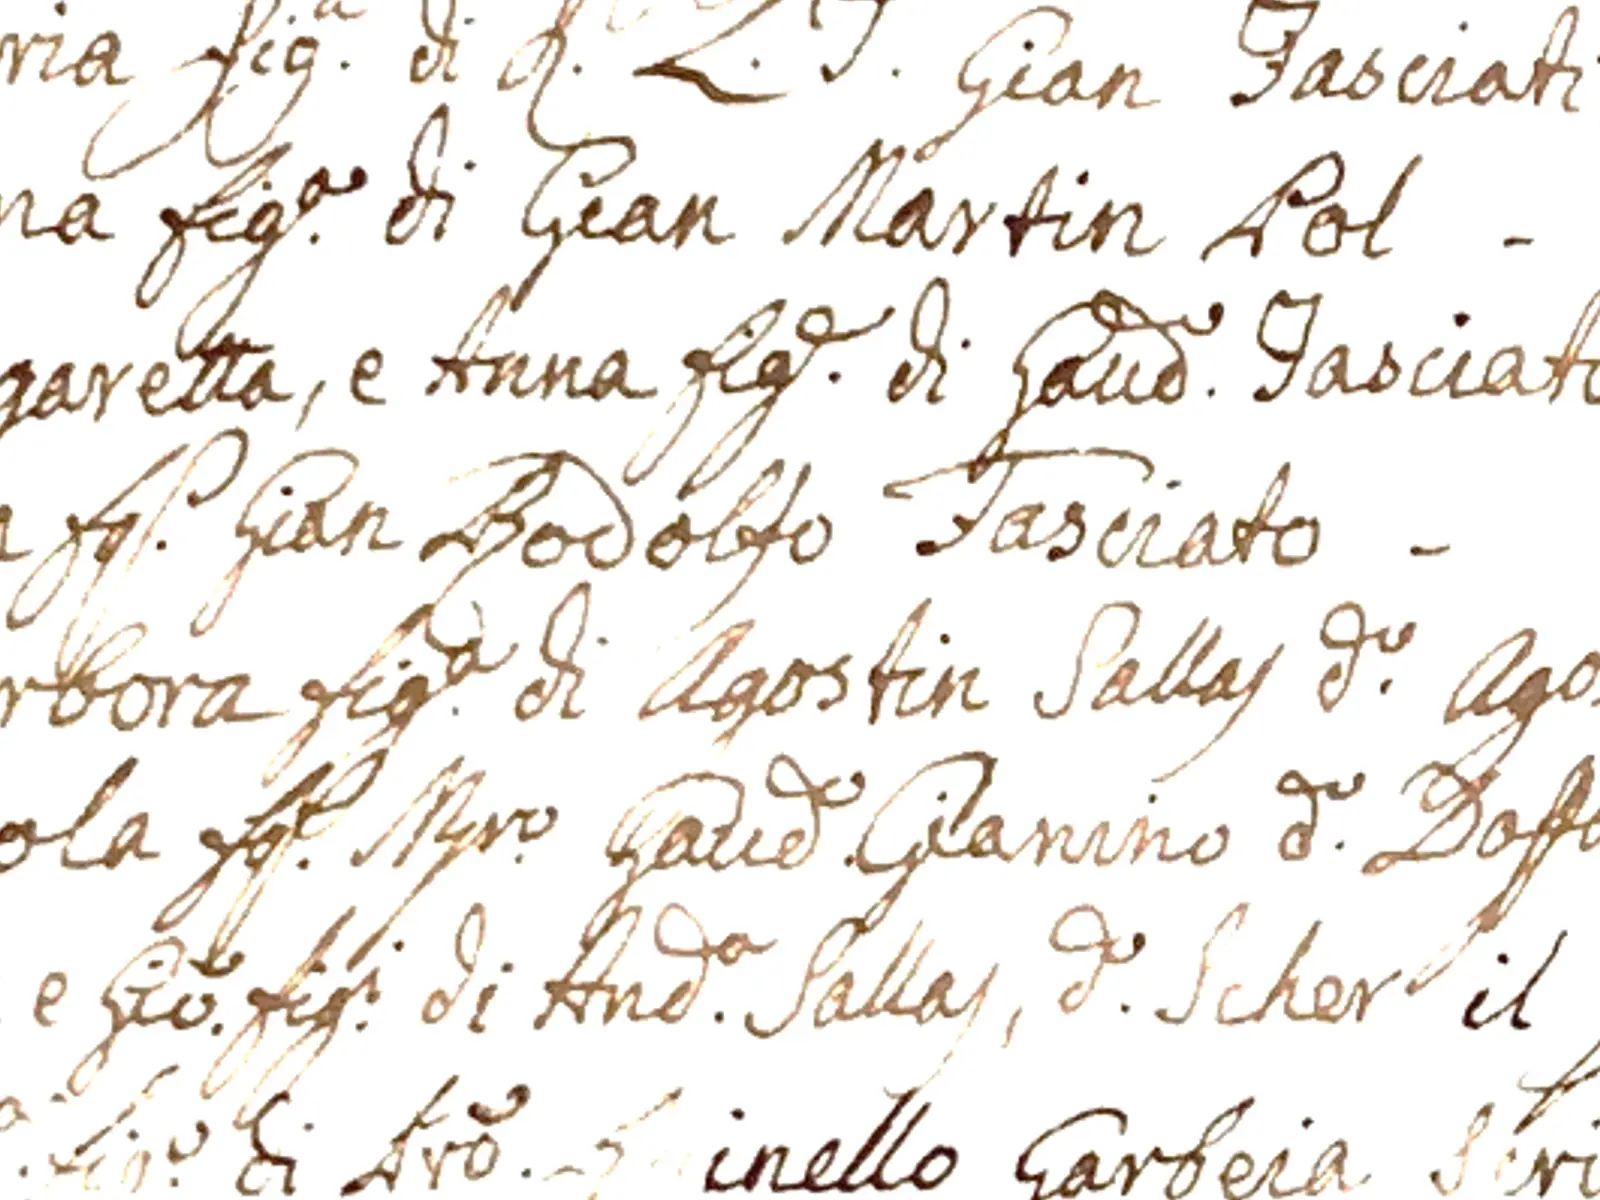 ria fig.ª di q. L. T. Gian Fasciati
na fig.ª di Gian Martin Pol -
garetta, e Anna fig.e di Gaud.o Fasciato
a fg.l Gian Rodolfo Fasciato -
rbora fig.ª di Agostin Sallaj d.o Agos
ola fg.l Mro. Gaud.o Gianino d.o Doffo
e Gio. fig.i di And.a Sallaj, d.o Scher il
fig.o di Aro. inello Garbeia Scri